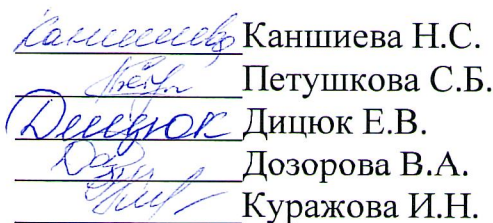 Каншиева Н.С.
Петушкова С.Б.
Дицюк Дицюк Е.В.
Дозорова В.А.
Куражова И.Н.